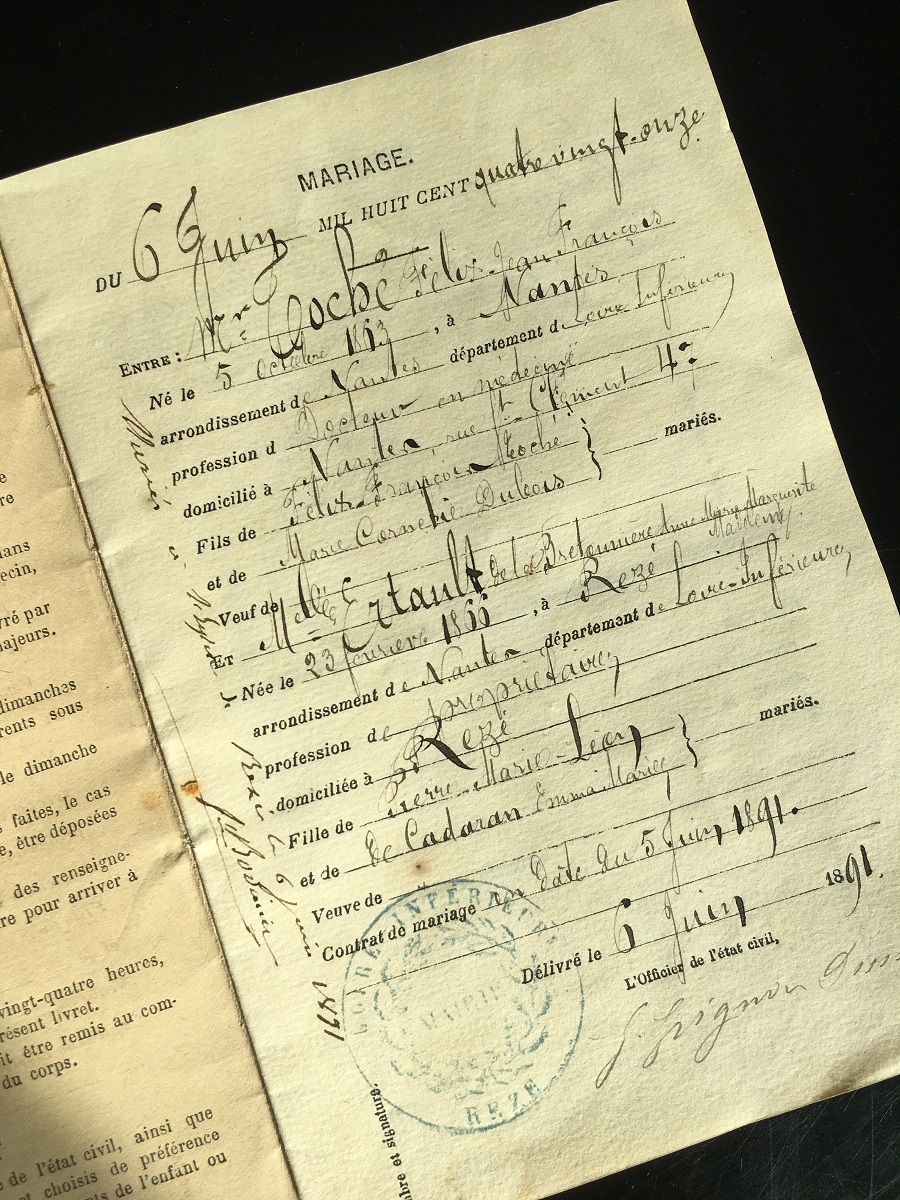 MARIAGE.
DU 6 Juin MIL HUIT CENT quatre vingt-onze
ENTRE : Mr Hoché Félix Jean François
Né le 5 octobre 1863, à Nantes
arrondissement de Nantes département de Loire Inférieure
profession d Docteur en médecine
domicilié à Nantes, rue St Clément 47
Fils de Félix François Hoché
et de Marie Dubois } mariés.
Veuf de
ET Melle Ertault de la Bretonnière Anne Marie Marguerite
Née le 23 février 1866, à Rezé
arrondissement de Nantes département de Loire-Inférieure
profession de propriétaire
domiciliée à Rezé
Fille de Pierre-Marie-Léon
et de de Cadaran Emma Marie } mariés.
Veuve de "
Contrat de mariage en date du 5 Juin 1891.
Délivré le 6 Juin 1891.
L'Officier de l'état civil,
Rezé le 6 Juin 1891
LOIRE INFERIEURE
MAIRIE
REZÉ
bre et signature.
re
dans
ecin,
vré par
majeurs.
dimanches
rents sous
le dimanche
faites, le cas
e, être déposées
des renseigne-
re pour arriver à
vingt-quatre heures,
présent livret.
it être remis au com-
du corps.
e de l'état civil, ainsi que
et choisis de préférence
ts de l'enfant ou